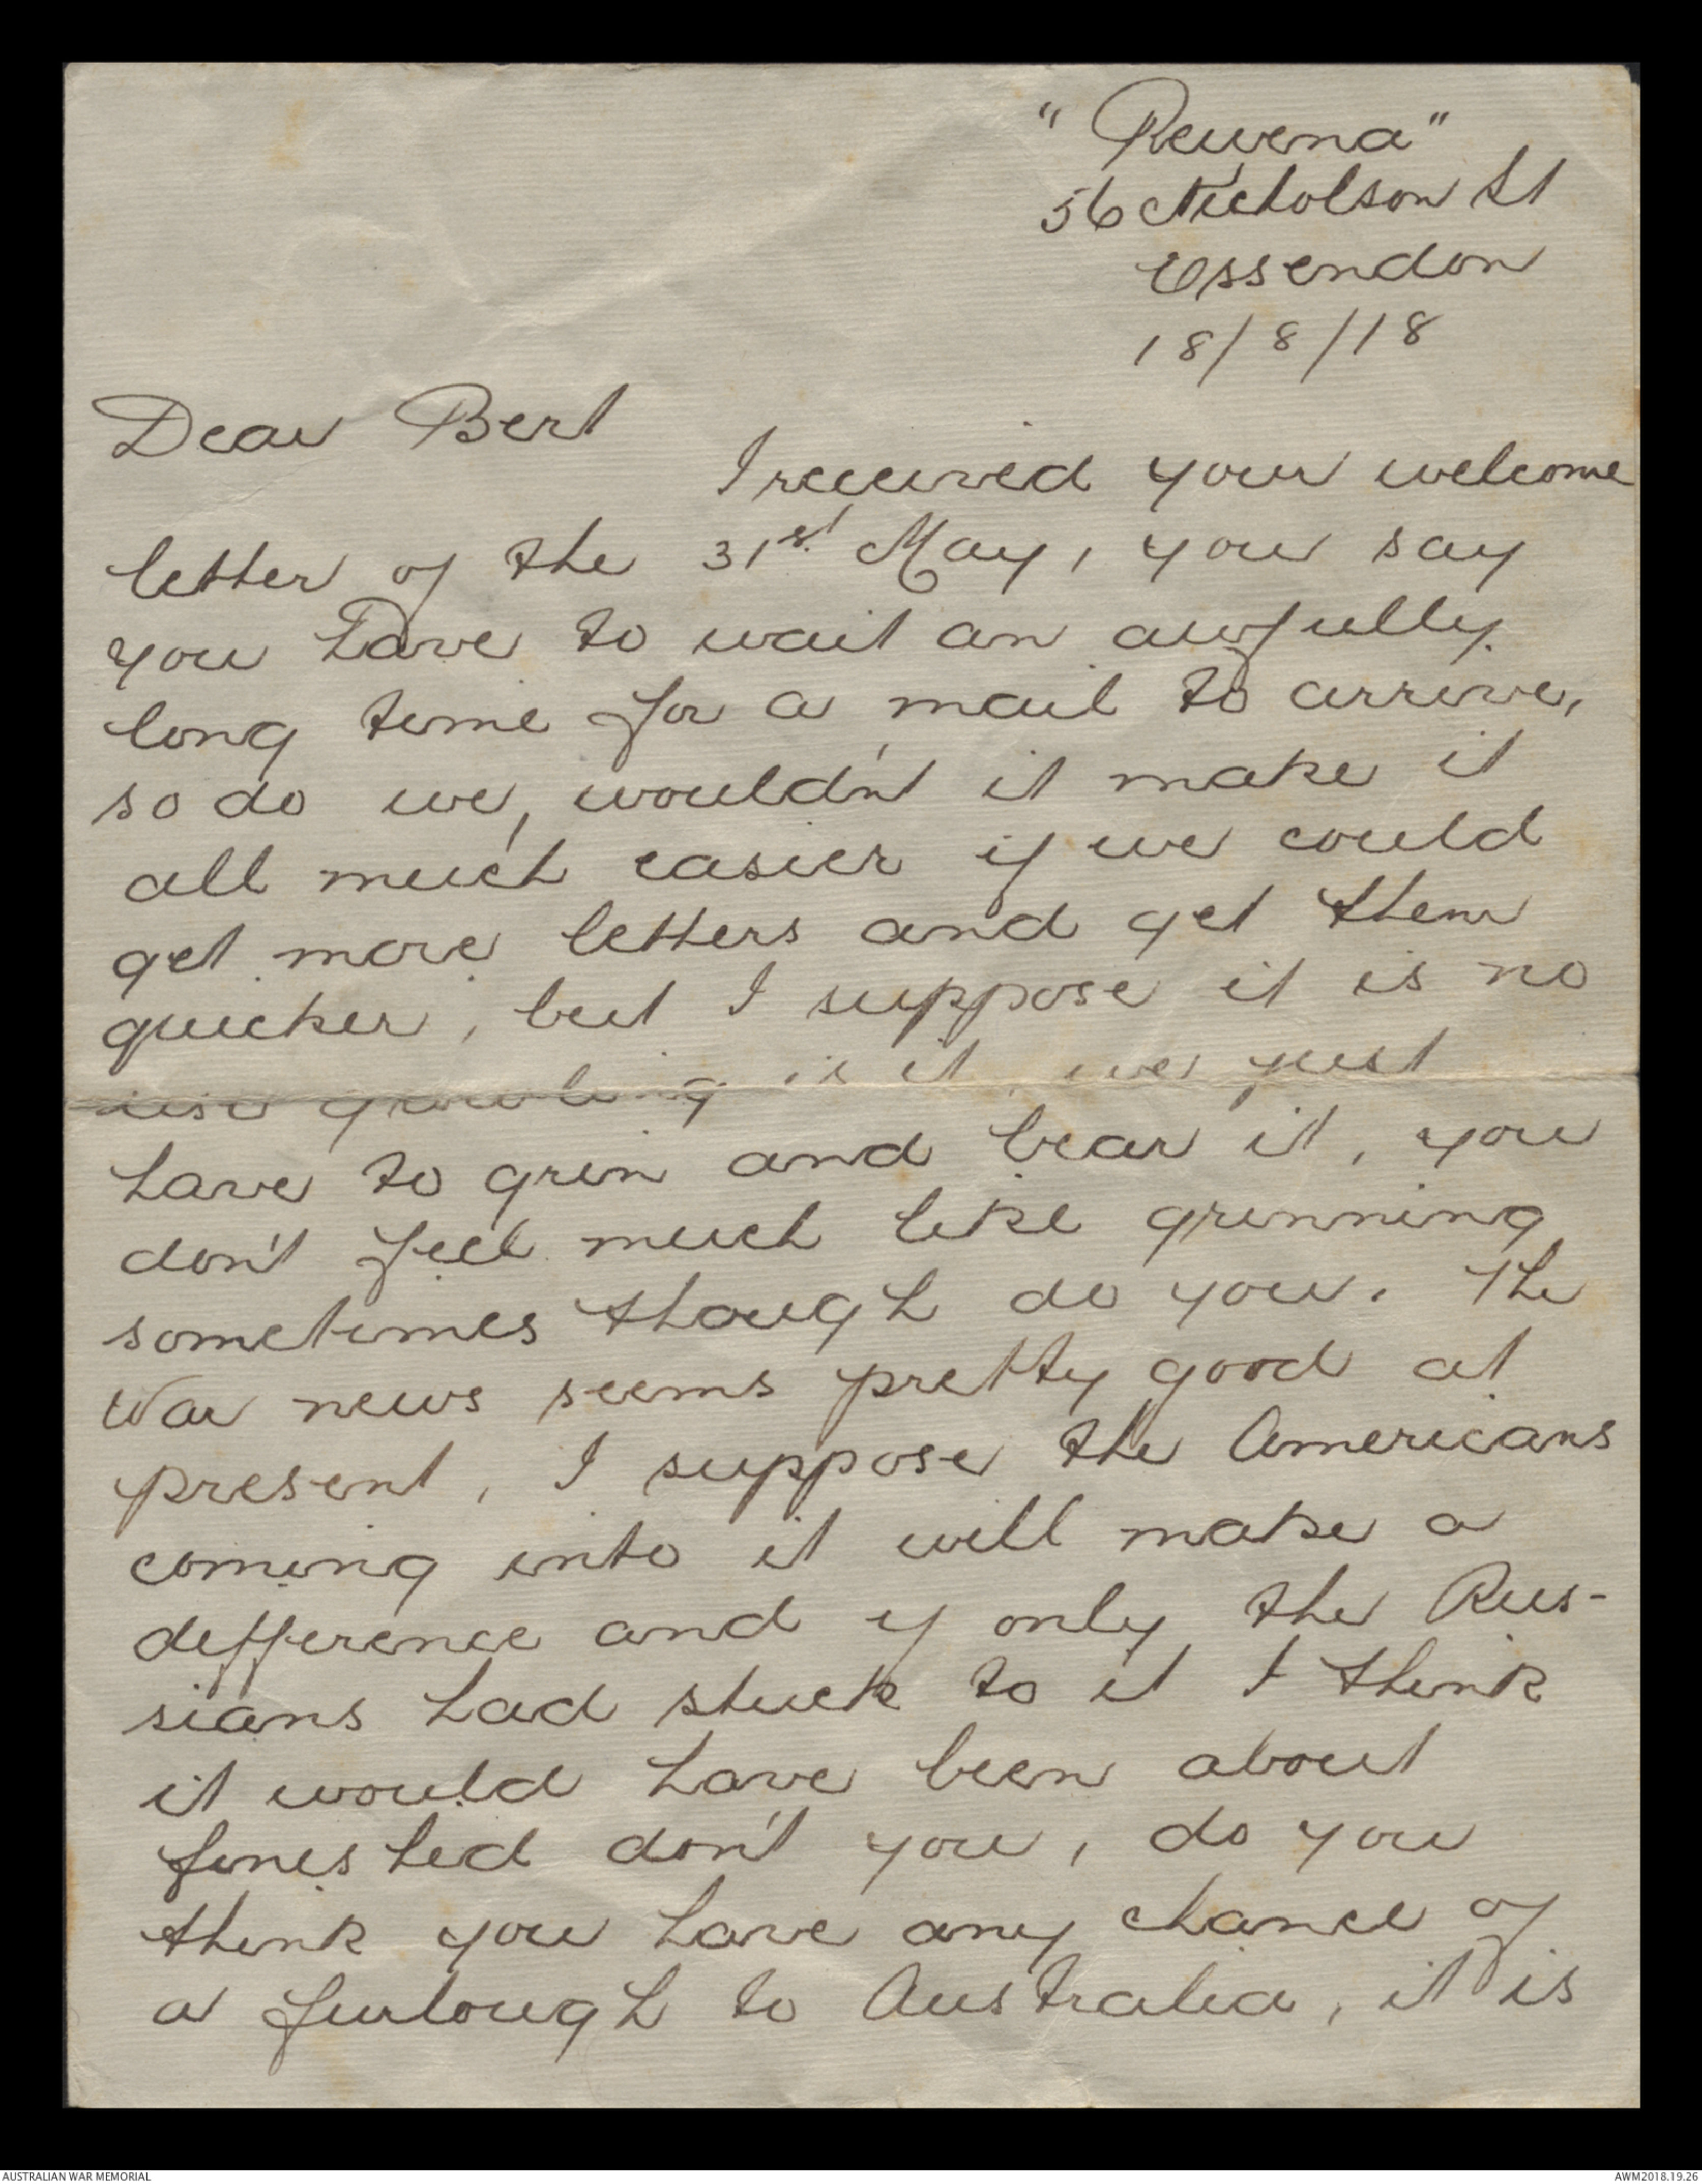 "Rewena"
56 Nicholson St
Essendon
18/8/18
Dear Bert
I received your welcome
letter of the 31st May, you say
you have to wait an awfully
long time for a mail to arrive,
so do we, wouldn't it make it
all much easier if we could
get more letters and get them
quicker, but I suppose it is no
use growling is it, we just
have to grin and bear it, you
don't feel much like grinning
sometimes though do you. The
War news seems pretty good at
present, I suppose the Americans
coming into it will make a
difference and if only the Rus-
sians had stuck to it I think
it would have been about
finished don't you, do you
think you have any chance of
a furlough to Australia, it is
AUSTRALIAN WAR MEMORIAL
AWM2018.19.26